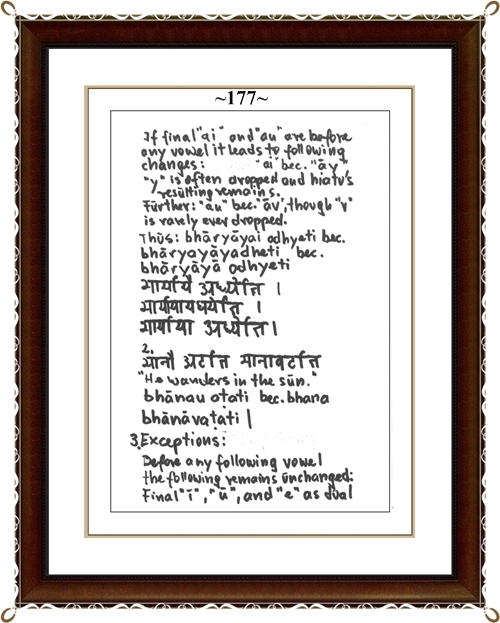 ~177~
If final "ai" and "au" are before
any vowel it leads to following
changes: "ai" bec. "āy"
"y" is often dropped and hiatu's
resulting remains.
Further: "āu" bec. "āv", though "v"
is rarely ever dropped.
Thus: bhāryāyai adhyeti bec.
bhāryāyāyadheti bec.
bhāryāyā adhyeti
भार्यायै अध्येति ।
भार्यायायध्येति ।
भार्याया अध्येति ।
2.
भानौ अटति भानावटति
"He wanders in the sun."
bhānau atati bec. bhana
bhānāvaṭati |
3. Exceptions:
Before any following vowel
the following remains unchanged:
Final "ī", "ū", and "e" as dual